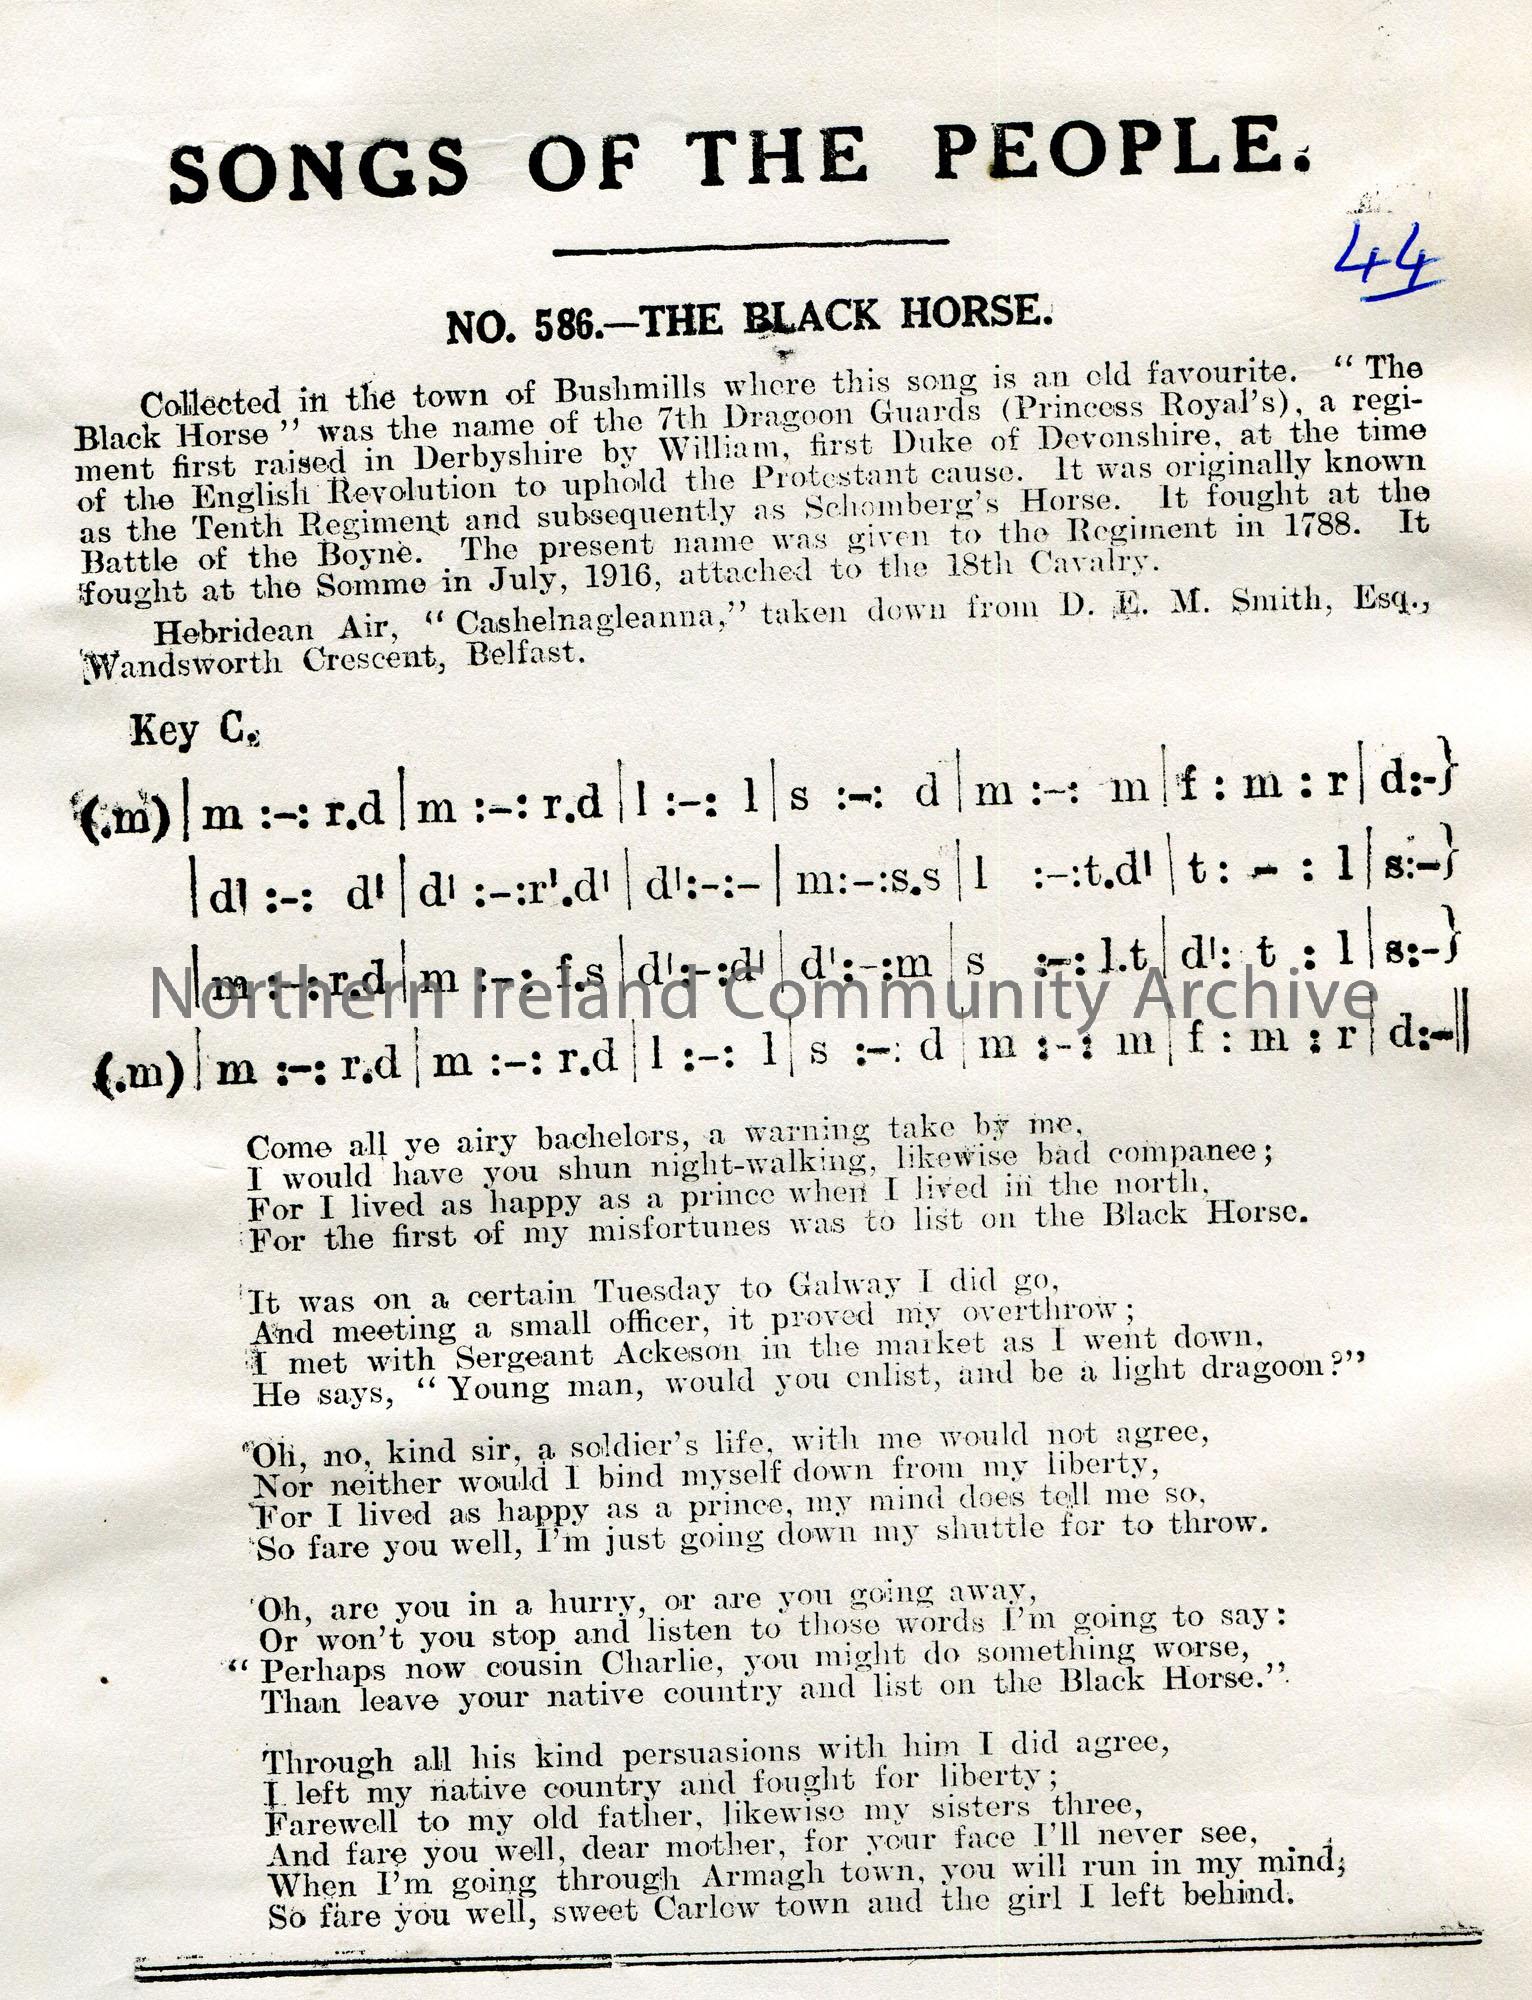 SONGS OF THE PEOPLE.
44
NO. 586.—THE BLACK HORSE.
Collected in the town of Bushmills where this song is an old favourite. “ The
Black Horse ” was the name of the 7th Dragoon Guards (Princess Royal's), a regi-
ment first raised in Derbyshire by William, first Duke of Devonshire, at the time
of the English Revolution to uphold the Protestant cause. It was originally known
as the Tenth Regiment and subsequently as Schomberg's Horse. It fought at the
Battle of the Boyne. The present name was given to the Regiment in 1788. It
fought at the Somme in July, 1916, attached to the 18th Cavalry.
Hebridean Air, “ Cashelnagleanna,” taken down from D. E. M. Smith, Esq.,
Wandsworth Crescent, Belfast.
Key C.
(.m) | m :–: r.d | m :–: r.d | l :–: l | s :–: d | m :–: m | f : m : r | d:–}
| d| :–: d| | d| :–:r|.d| | d|:–:– | m:–:s.s | l :–:t.d| | t : – : l | s:–}
| m :–:r.d | m :–: f.s | d|:–:d| | d|:–:m | s :–: l.t | d|: t : l | s:–}
(.m) | m :–: r.d | m :–: r.d | l :–: l | s :–: d | m :–: m | f : m : r | d:–||
Northern Ireland Community Archive
Come all ye airy bachelors, a warning take by me,
I would have you shun night-walking, likewise bad companee ;
For I lived as happy as a prince when I lived in the north,
For the first of my misfortunes was to list on the Black Horse.
It was on a certain Tuesday to Galway I did go,
And meeting a small officer, it proved my overthrow ;
I met with Sergeant Ackeson in the market as I went down,
He says, “ Young man, would you enlist, and be a light dragoon ?”
“Oh, no, kind sir, a soldier's life, with me would not agree,
Nor neither would I bind myself down from my liberty,
For I lived as happy as a prince, my mind does tell me so,
So fare you well, I'm just going down my shuttle for to throw.
'Oh, are you in a hurry, or are you going away,
Or won't you stop and listen to those words I'm going to say :
“ Perhaps now cousin Charlie, you might do something worse,
Than leave your native country and list on the Black Horse.”
Through all his kind persuasions with him I did agree,
I left my native country and fought for liberty ;
Farewell to my old father, likewise my sisters three,
And fare you well, dear mother, for your face I'll never see,
When I'm going through Armagh town, you will run in my mind;
So fare you well, sweet Carlow town and the girl I left behind.